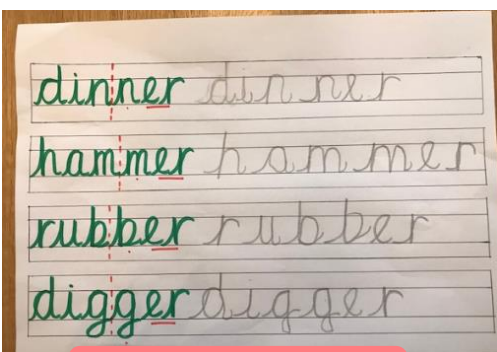 dinner dinner
hammer hammer
rubber rubber
digger digger